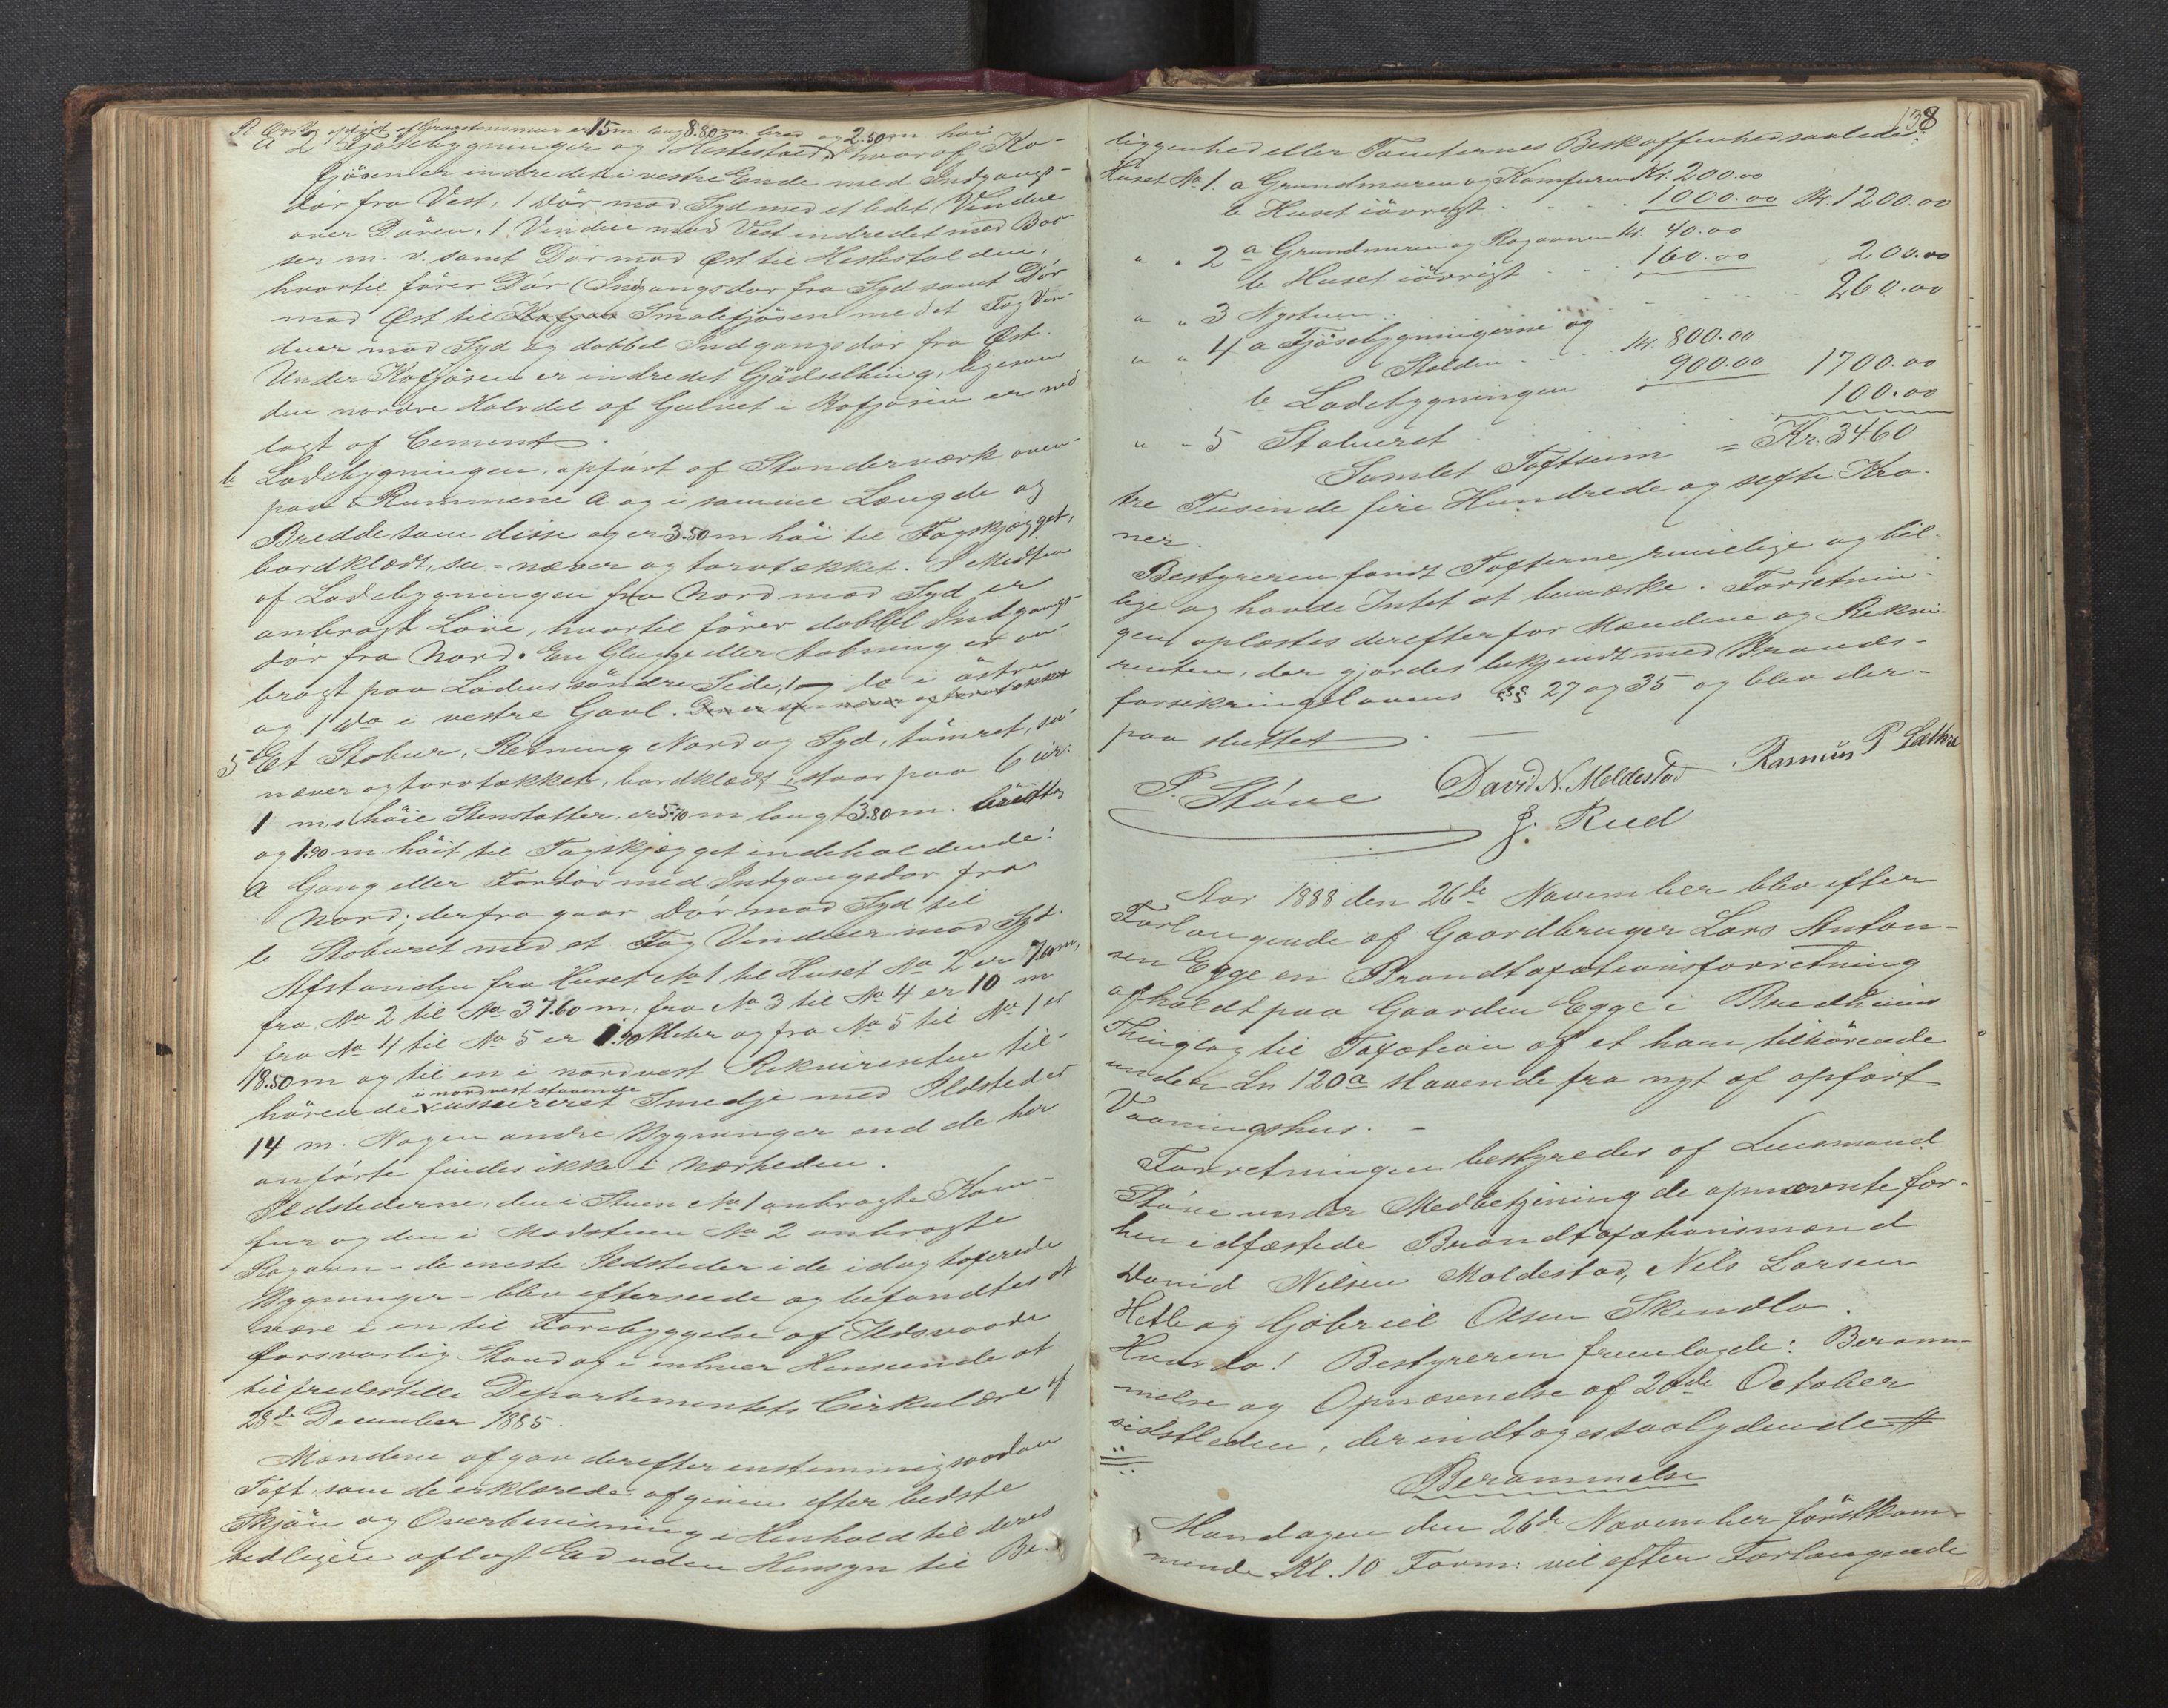 og Vest, opført af Graastensmur er 15 m. lang 8.80 m. bred og 2.50 m høi
a 2 Fjösebygninger og 1 Hestestald hvoraf Ko-
fjösen er indredet i vestre Ende med Indgangs-
dör fra Vest, 1 Dör mod Syd med et lidet Vindue
over Dören, 1 Vindue mod Vest indredet med Baa-
ser m. v. samt Dör mod Øst til Hestestalden,
hvortil förer Dör (Indgangsdör fra Syd samt Dör
mod Øst til Smalefjösen med et Fag Vin-
duer mod Syd og dobbel Indgangsdör fra Øst.
Under Kofjösen er indredet Gjödselbing, ligesom
den nordre Halvdel af Gulvet i Kofjösen er ned
lagt af Cement.
b Ladebygningen, opfört af Standerværk oven-
paa Rummene a og i samme Længde og
Bredde som disse og er 3.50 m höi til Tagskjægget,
bordklædt, su-næver og torvtækket. I Midten
af Ladebygningen fra Nord mod Syd er
anbragt Löve, hvortil förer dobbel Indgangs-
dör fra Nord. En Glugge eller Aabning er an-
bragt paa Ladens söndre Side, 1 do i östre
og 1 do i vestre Gavl. Den er su-næver og torvtækket
5 Et Stabur, Retning Nord og Syd, tömret, su-
næver og torvtækket, bordklædt, staar paa 6 cir.
1 m.s höie Stenstøtter, er 5.10 m langt 3.80 m. bredt
og 1.90 m. höit til Tagskjægget indeholdende:
a Gang eller Fordör med Indgangsdör fra
Nord; derfra gaar Dör mod Syd til
b Staburet med et Fag Vinduer mod Syd.
Afstanden fra Huset No 1 til Huset No 2 er 7.60 m,
fra No 2 til No 3 7.60 m, fra No 3 til No 4 er 10 m
fra No 4 til No 5 er 1.90 Meter og fra No 5 til No 1 er
18.50 m og til en i nordvest Rekvirenten til-
hörende i nordvest staaende assureret Smedje med Ildsted er
14 m. Nogen andre Bygninger end de her
anförte findes ikke i Nærheden.
Ildstederne, den i Stuen No 1 anbragte Kom-
fur og den i Madstuen No 2 anbragte
Rogovn - de eneste Ildsteder i de idag taxerede
Bygninger - blev efterseede og befandtes at
være i en til Forebyggelse af Ildsvaade
forsvarlig Stand og i enhver Henseende at
tilfredsstille Departementets Cirkulære af
28de December 1885.
Mændene afgav derefter enstemmig saadan
Taxt som de erklærede afgiven efter bedste
Skjön og Overbevisning i Henhold til deres
tidligere aflagt Eed uden Hensyn til Be-
138
liggenhed eller Tomternes Beskaffenhed saaledes:
Huset No 1. a Grundmuren og Komfuren Kr. 200.00
b Huset iövrigt 1000.00 Kr. 1200.00
" " 2 a Grundmuren og Rogovnen Kr. 40.00
b Huset iövrigt 160.00 200.00
" " 3 Nystuen 260.00
" " 4 a Fjösebygningerne og
Stalden Kr. 800.00
b Ladebygningen 900.00 1700.00
" " 5 Staburet 100.00
Samlet Taxtsum = Kr. 3460
tre Tusinde fire Hundrede og sexti Kro-
ner.
Bestyreren fandt Taxterne rimelige og bil-
lige og havde Intet at bemærke. Forretnin-
gen oplæstes derefter for Mændene og Rekvi-
renten, der gjordes bekjendt med Brands-
forsikringslovens §§ 27 og 35 og blev der-
paa sluttet.
P. Støve David N. Moldestad Rasmus P Sæthre
J. Rud
Aar 1888 den 26de November blev efter
Forlangende af Gaardbruger Lars Anton-
sen Egge en Brandtaxationsforretning
afholdt paa Gaarden Egge i Bredheims
Thinglag til Taxation af et ham tilhörende
under Ln 120a staaende fra nyt af opfört
Vaaningshus. -
Forretningen bestyredes af Lensmand
Støve under Medbetjening de opnævnte för-
hen edfæstede Brandtaxationsmænd
David Nilsen Moldestad, Nils Larsen
Hetle og Gabriel Olsen Skindlo.
Hvorda! Bestyreren fremlagde: Beram-
melse og Opnævnelse af 20de October
sidstleden, der indtages saalydende #
Berammelse
Mandagen den 26de November förstkom-
mende Kl. 10 Form: vil efter Forlangende